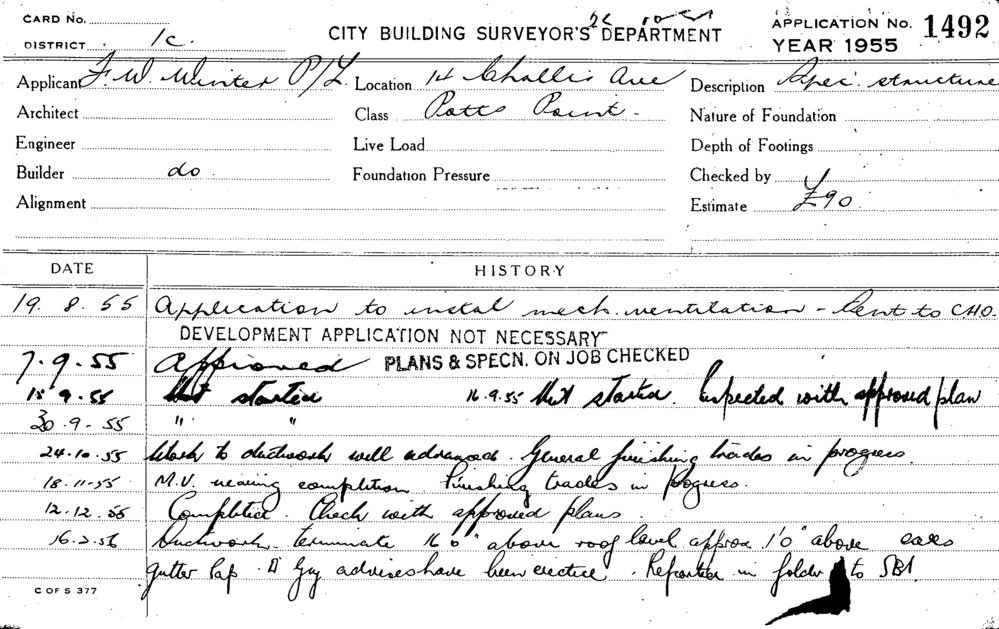 CARD No.
DISTRICT 1c.
CITY BUILDING SURVEYOR'S DEPARTMENT
APPLICATION No. 1492
YEAR 1955
Applicant F. W. Winter P/L Location 14 Challis Ave Description Spec. structure
Architect Class Potts Point. Nature of Foundation
Engineer Live Load Depth of Footings
Builder do Foundation Pressure Checked by
Alignment Estimate £90
DATE HISTORY
19. 8. 55 Application to instal mech. ventilation - Sent to CHO.
DEVELOPMENT APPLICATION NOT NECESSARY
7. 9. 55 Approved PLANS & SPECN. ON JOB CHECKED
15 9. 55 Not started 16. 9. 55 Not started. Inspected with approved plan
30. 9. 55 " "
24. 10. 55 Work to ductwork well advanced. General finishing trades in progress.
18. 11. 55 M.V. nearing completion. Finishing trades in progress.
12. 12. 55 Completed. Check with approved plans.
16. 2. 56 Ductwork terminate 16'0" above roof level approx 1'0" above eaves
gutter Guy have been erected. Reported in folder to SBI.
C OF S 377